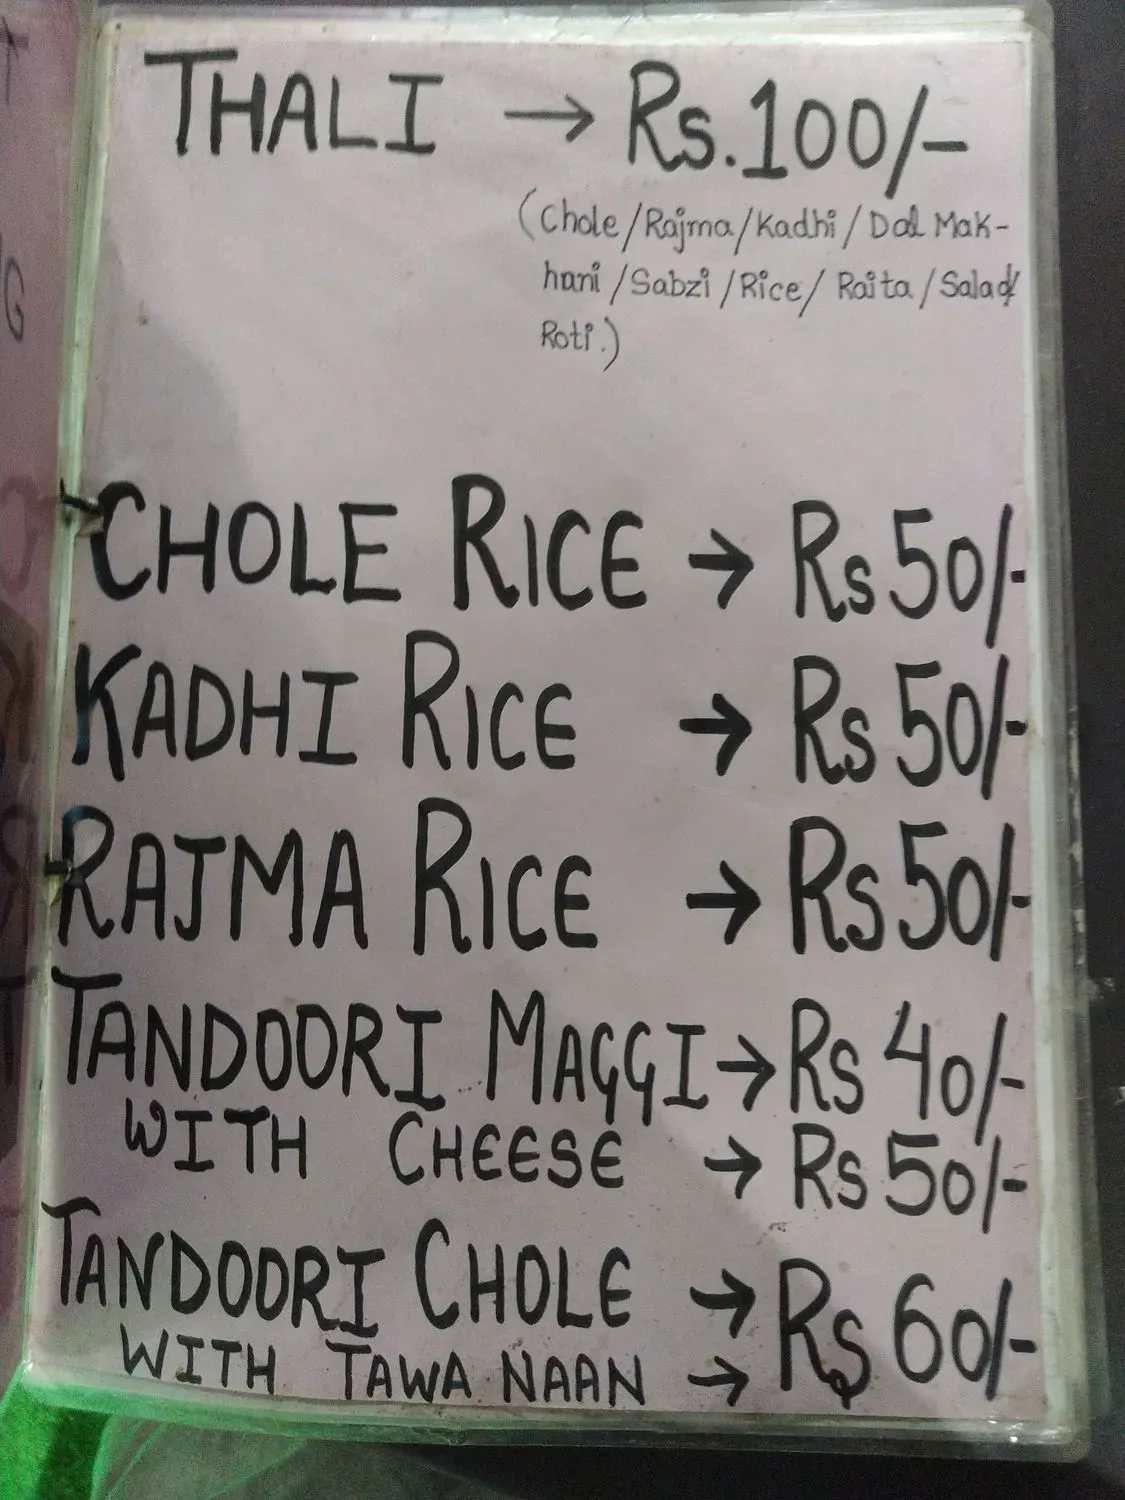 THALI → Rs.100/-
(Chole/Rajma/Kadhi/Dal Mak-
hani/Sabzi/Rice/Raita/Salad/
Roti.)
CHOLE RICE → Rs 50/-
KADHI RICE → Rs 50/-
RAJMA RICE → Rs 50/-
TANDOORI MAGGI → Rs 40/-
WITH CHEESE → Rs 50/-
TANDOORI CHOLE → Rs 60/-
WITH TAWA NAAN →